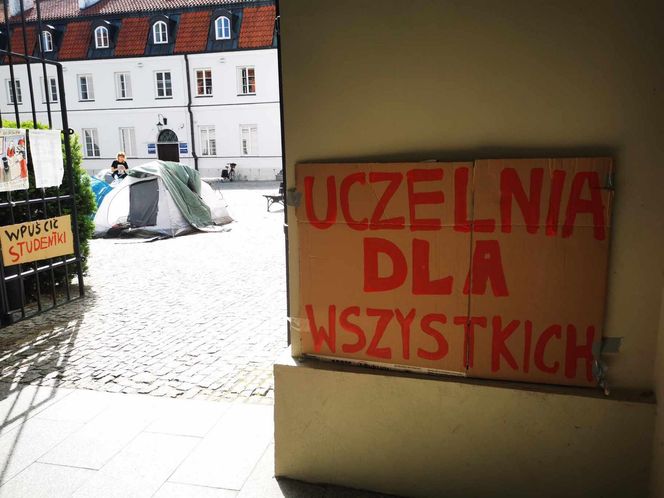 WPUŚCIŻ
STUDENTKI
UCZELNIA
DLA
WSZYSTKICH